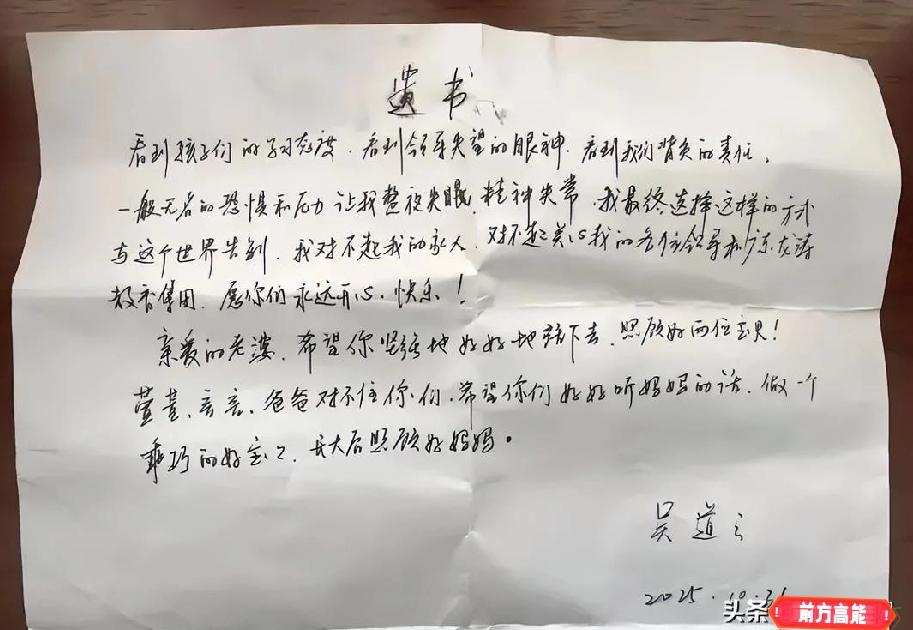 遗书
看到孩子们的学习态度、看到领导失望的眼神、看到我们背负的责任、
一般无名的恐惧和压力让我整夜失眠、精神失常、我最终选择这样的方式
与这个世界告别、我对不起我的家人、对不起关心我的各位领导和
教育集团、愿你们永远开心、快乐！
亲爱的老婆、希望你坚强地好好地活下去、照顾好两位宝贝！
爸爸对不住你们、希望你们好好听妈妈的话、做一个
乖巧的好宝宝、长大后照顾好妈妈。
吴道
2025.10.31
头条
前方高能